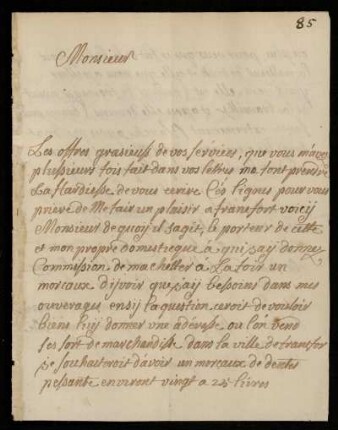 85
Monsieur
Les offres grasieuse de vos services, que vous m'avez
plussieurs fois fait dans vos letres me font prendre
La Hardiesse de vous ecrire Ces lignes pour vous
priere de Me fair un plaisir a francfort voicy
Monsieur de quoy il sagit, le porteur de cette
et mon propre domesticque a qui j'ay donnez
Commission de m'acheller à La foir un
morcaux d'ijvoir que j'ay bessoins dans mes
ouverages ensij la question ceroit de vouloir
biens luij donner une adresse ou l'on vend
ses sort de marchandisse dans la ville de francfor
je souhaiteroit d'avoir un morceaux de dentes
pessante environt vingt a 25 livres